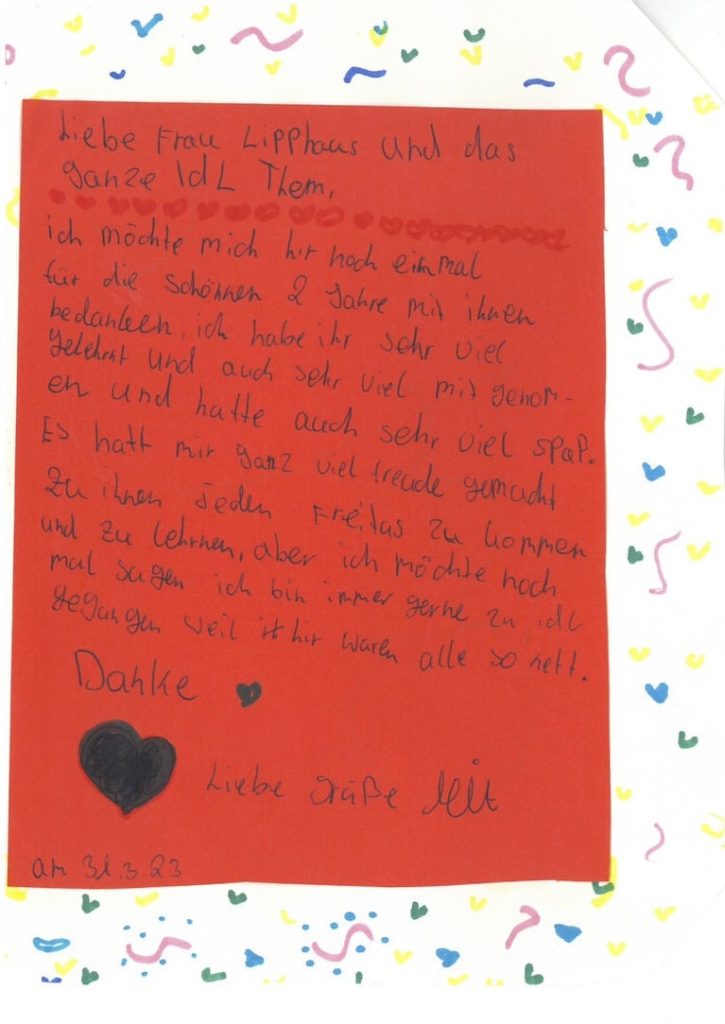 Liebe Frau Lipphaus und das
ganze IdL Them,
ich möchte mich hir noch einmal
für die schönnen 2 Jahre mit ihnen
bedanken, ich habe ihr sehr viel
gelehrnt und auch sehr viel mit genom-
en und hatte auch sehr viel spaß.
Es hatt mir ganz viel freude gemacht
zu ihnen jeden Freitag zu kommen
und zu lehrnen, aber ich möchte noch
mal sagen ich bin immer gerne zu idL
gegangen weil hir waren alle so nett.
Danke
Liebe grüße
am 31.3.23